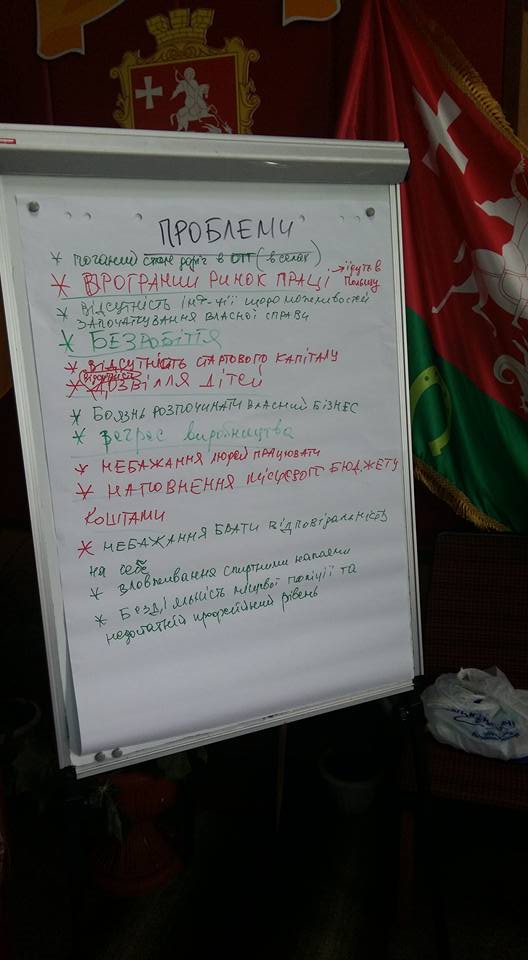 ПРОБЛЕМИ
* поганий стан доріг в ОТГ (в селах)
* ПРОГРАНИЙ РИНОК ПРАЦІ → їдуть в Польщу
* ВІДСУТНІСТЬ ІНФ-ЦІЇ ЩОДО МОЖЛИВОСТЕЙ
ЗАПОЧАТКУВАННЯ ВЛАСНОЇ СПРАВИ
* БЕЗРОБІТТЯ
* ВІДСУТНІСТЬ СТАРТОВОГО КАПІТАЛУ
* ДОЗВІЛЛЯ ДІТЕЙ
* БОЯЗНЬ РОЗПОЧИНАТИ ВЛАСНИЙ БІЗНЕС
* регрес виробництва
* НЕБАЖАННЯ ЛЮДЕЙ ПРАЦЮВАТИ
* НАПОВНЕННЯ МІСЦЕВОГО БЮДЖЕТУ
КОШТАМИ
* НЕБАЖАННЯ БРАТИ ВІДПОВІДАЛЬНІСТЬ
на себе
* зловживання спиртними напоями
* Бездіяльність місцевої поліції та
недостатній професійний рівень